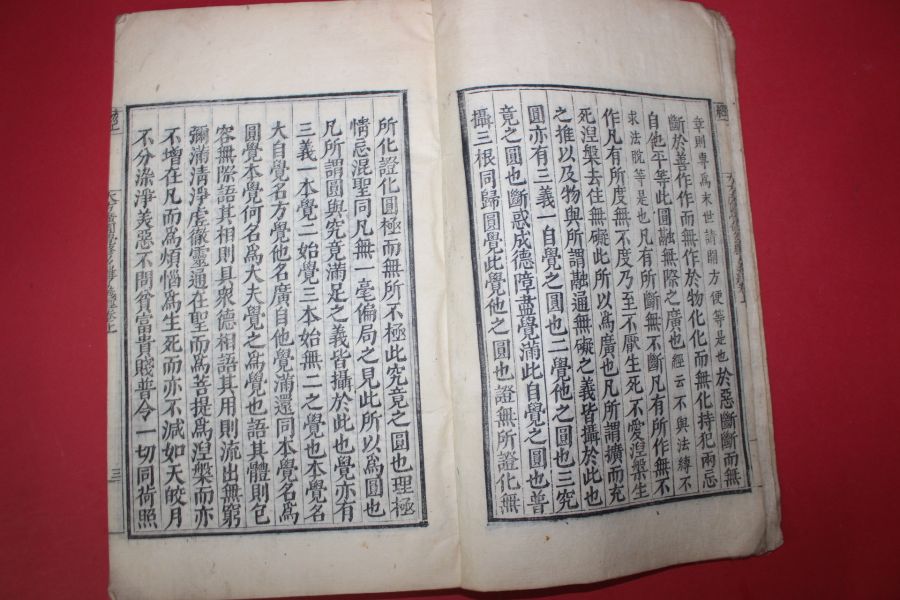 章則專爲末世請開方便等是也於惡斷斷而無
斷於善作作而無作於物化化而無化持犯兩忌
自他平等此圓融無際之廣也經云不與法縛不
求法脫等是也凡有所斷無不斷凡有所作無不
作凡有所度無不度乃至不厭生死不愛涅槃生
死涅槃去住無礙此所以爲廣也凡所謂擴而充
之推以及物與所謂融通無礙之義皆攝於此也
圓亦有三義一自覺之圓也二覺他之圓也三究
竟之圓也斷惑成德障盡覺滿此自覺之圓也普
攝三根同歸圓覺此覺他之圓也證無所證化無
所化證化圓極而無所不極此究竟之圓也理極
情忌混聖同凡無一毫偏局之見此所以爲圓也
凡所謂圓與究竟滿足之義皆攝於此也覺亦有
三義一本覺二始覺三本始無二之覺也本覺名
大自覺名方覺他名廣自他覺滿還同本覺名爲
圓覺本覺何名爲大夫覺之爲覺也語其體則包
容無際語其相則具衆德相語其用則流出無窮
彌滿清淨虛徹靈通在聖而爲菩提爲涅槃而亦
不增在凡而爲煩惱爲生死而亦不減如天皎月
不分染淨美惡不問貧富貴賤普令一切同荷照
三